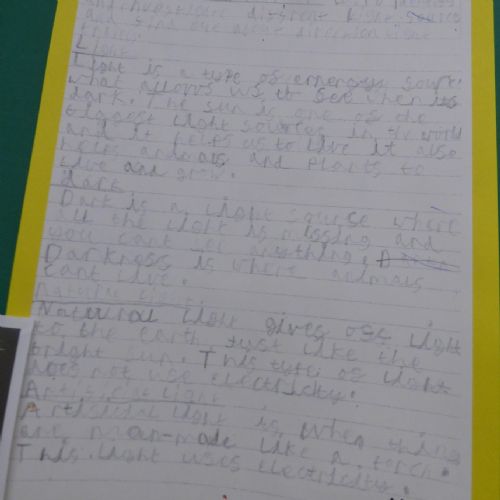 and investigate different light source
and find out about direction light
travels
Light
Light is a type of energy sourc
what allows us to see when its
dark. The sun is one of the
biggest light sources in the world
and it helps us to live it also
helps animals and plants to
live and grow.
dark
Dark is a light sourse where
all the light is missing and
you cant see anything.
Darkness is where animals
cant live.
Natural light
Natural light gives off light
to the earth Just like the
bright sun. This type of light
does not use electricity.
Artificial light
Artificial light is when things
are man-made like a torch.
This light uses electricity.